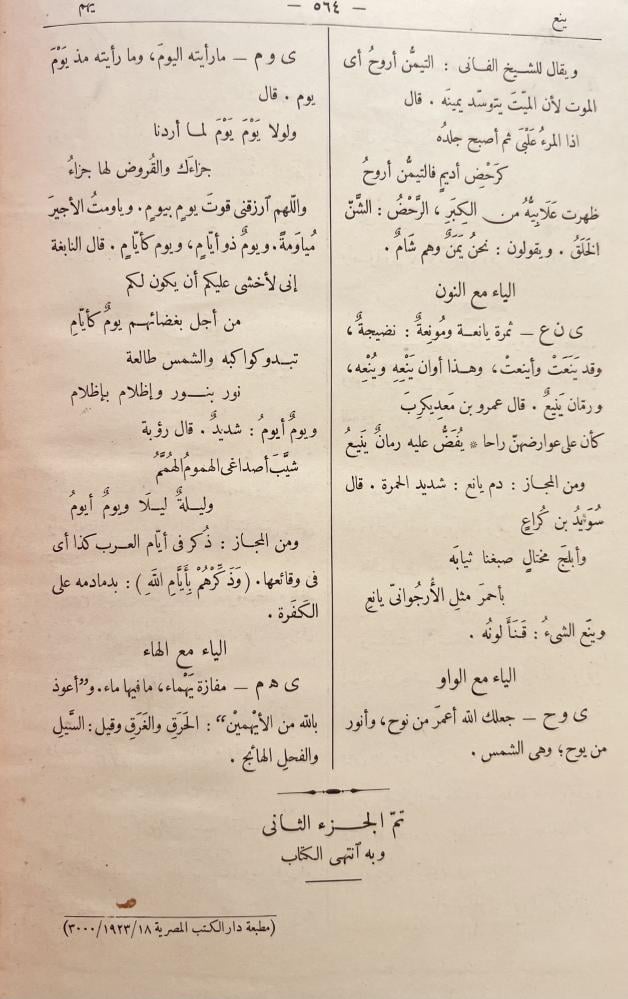 ينع
— ٥٦٤ —
يهم
ويقال للشيخ الفانى : التيمُّن أروحُ أى
الموت لأن الميّتَ يتوسّد يمينَه . قال
اذا المرءُ عَلْبَى ثم أصبح جلدُه
كرَحْضِ أديمٍ فالتيمُّن أروحُ
ظهرت عَلَابِيُّه من الكِبَرِ ، الرَّحْضُ : الشَّنّ
الخَلَقُ . ويقولون : نحنُ يَمَنٌ وهم شَامٌ .
الياء مع النون
ى ن ع — ثمرة يانعة ومُونِعةٌ : نضيجةٌ ،
وقد يَنَعَتْ وأينعتْ ، وهذا أوان يَنْعِهِ ويُنْعِه ،
ورمّان يَنِيعٌ . قال عمرو بن مَعديكرِبَ
كأن على عوارضهنّ راحا * يُفَضُّ عليه رمانٌ يَنيعُ
ومن المجاز : دم يانع : شديد الحمرة . قال
سُوَيدُ بن كُراعٍ
وأبلجَ مختالٍ صبغنا ثيابَه
بأحمرَ مثلِ الأُرجُوانىّ يانعِ
وينَع الشىءُ : قَنَأَ لونُه .
الياء مع الواو
ى و ح — جعلك الله أعمرَ من نوح، وأنور
من يوح؛ وهى الشمس .
ى و م — مارأيته اليومَ، وما رأيته مذ يَوْمَ
يوم . قال
ولولا يَوْمُ يَوْمَ لما أردنا
جزاءَك والقُروض لها جزاءُ
واللهم ٱرزقنى قوتَ يومٍ بيومٍ . وياومتُ الأجيرَ
مُياوَمةً. ويومٌ ذو أيّامٍ، ويوم كأيّامٍ . قال النابغة
إنى لأخشى عليكم أن يكون لكم
من أجل بغضائهم يومٌ كأيّامِ
تبدو كواكبه والشمس طالعة
نور بنور وإظلام بإظلام
ويومٌ أيومُ : شديدٌ . قال رؤبة
شيَّبَ أصداغى الهمومُ الهُمَّمُ
وليلةٌ ليلَا ويومٌ أيومُ
ومن المجاز : ذُكر فى أيّام العرب كذا أى
فى وقائعها. (وَذَكِّرْهُمْ بِأَيَّامِ اللهِ) : بدمادمه على
الكَفَرة .
الياء مع الهاء
ى ه م — مفازة يَهْماء، ما فيها ماء. و”أعوذ
بالله من الأيْهمينْ“ : الحَرَقِ والغَرَقِ وقيل: السَّيلِ
والفحلِ الهائج .
تمّ الجزء الثانى
وبه ٱنتهى الكتاب
(مطبعة دار الكتب المصرية ١٨/١٩٢٣/٣٠٠٠)